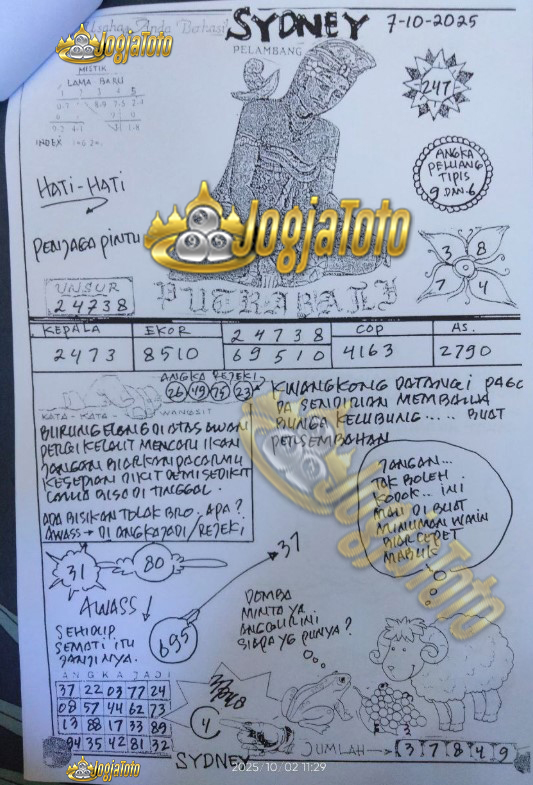 Usaha Anda Berhasil
SYDNEY
7-10-2025
JogjaToto
PELAMBANG
MISTIK
LAMA BARU
1 2 3 4 5
INDEX
247
ANGKA
PELUANG
TIPIS
9 DAN 6
HATI-HATI
PENJAGA PINTU
JogjaToto
3 8
7 4
UNSUR
24738
PUTRABALI
KEPALA EKOR 24738 COP AS.
2473 8510 69510 4163 2790
ANGKA REJEKI
26 49 75 23
KATA-KATA WANGSIT
KWANGKONG DATANG DI PAGODA SENDIRIAN MEMBAWA
BUNGA KELUBUNG.... BUAT
PERSEMBAHAN
BURUNG ELANG DI ATAS AWAN
PERGI KELAUT MENCARI IKAN
JANGAN BIARKAN PACARMU
KESEPIAN DIKIT DEMI SEDIKIT
LAMA BISA DI TINGGAL.
ADA BISIKAN TOLAK BRO. APA?
AWASS → DI ANGKA JADI/REJEKI
JANGAN...
TAK BOLEH
KODOK.. INI
MAU DI BUAT
MINUMAN
BIAR CEPET
MABUK
JogjaToto
31
80
37
AWASS
695
SEHIDUP
SEMATI ITU
JANJINYA.
DOMBA
MINTA YA
ANGGUR INI
SIAPA YG PUNYA?
ANGKA JADI
37 22 03 77 24
08 57 44 62 73
13 88 17 33 89
94 35 42 81 32
4
JUMLAH → 3 7 8 4 9
JogjaToto
SYDNEY
2025/10/02 11:29
JogjaToto